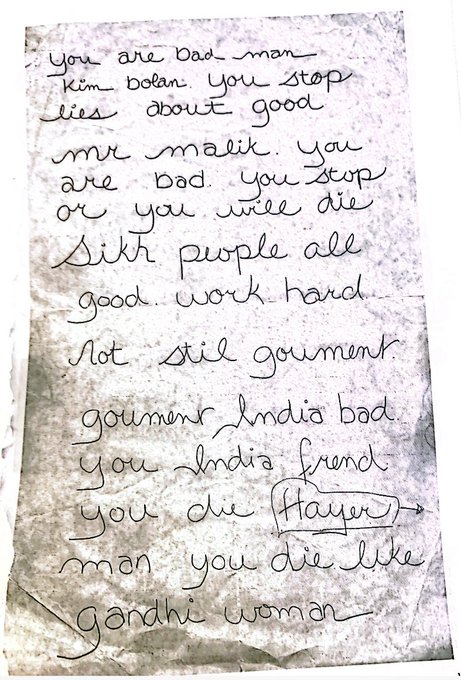 you are bad man
kim bolan. you stop
lies about good
mr malik. you
are bad. you stop
or you will die
Sikh people all
good. work hard.
Not stil goument.
goument India bad.
you India frend
you die Hayer →
man you die like
gandhi woman